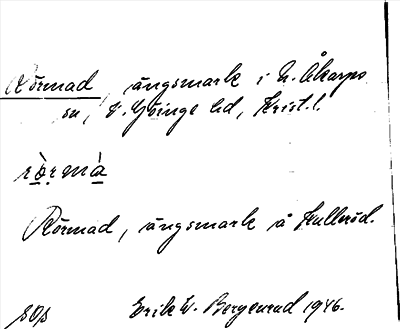 Rörmad, ängsmark i N. Åkarps
sn, V. Göinge hd, Krist. l.
rö̀rmà
Rörmad, ängsmark å Hulleröd.
Erik W. Bergenrud 1946.